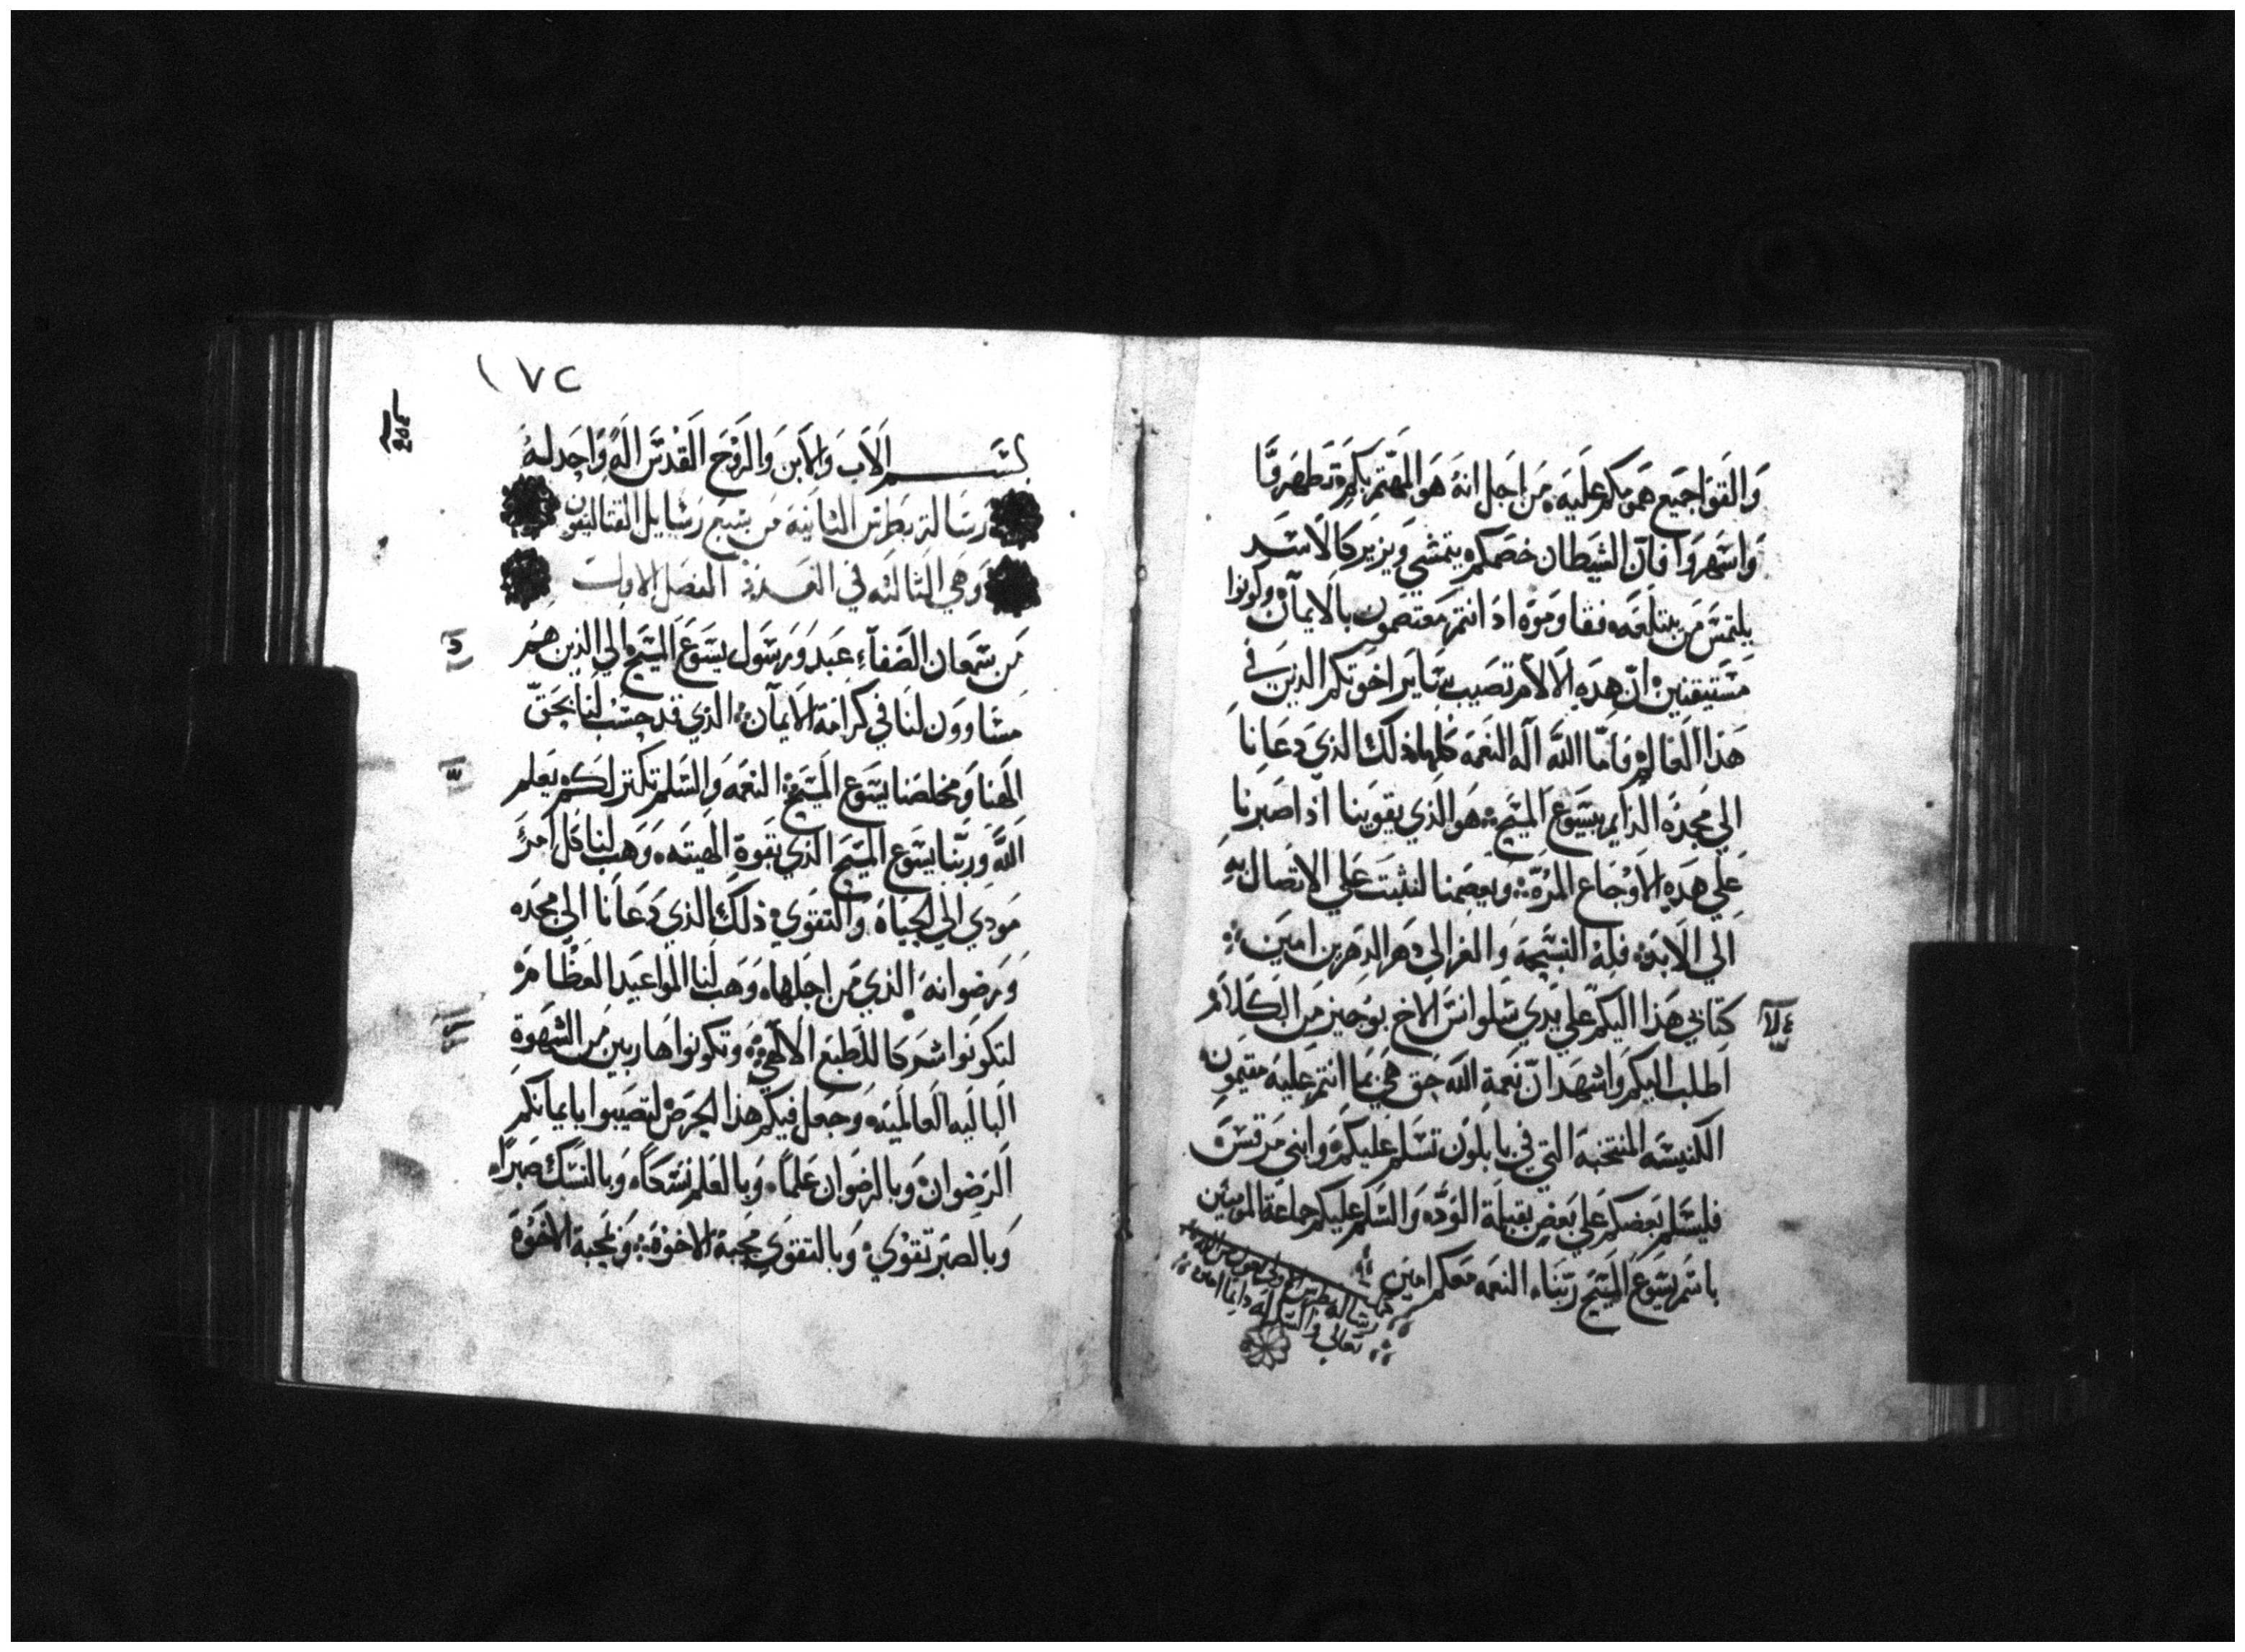 والقوا جميع همومكم عليه من اجل انه هو المهتم بكم تطهروا
واسهروا فان الشيطان خصمكم يتمشي ويزير كالاسد
يلتمس من يبتلعه فقاوموه اذ انتم معتصمون بالايمان وكونوا
مستيقنين ان هذه الالام تصيب ساير اخوتكم الذين في
هذا العالم فاما الله اله النعمه كلها ذلك الذي دعانا
الي مجده الدايم بيسوع المسيح هو الذي يقوينا اذا صبرنا
علي هذه الاوجاع المره ويعصمنا لنثبت علي الاتصال به
الي الابد فله التسبحه والعز الي دهر الدهرين امين
كتابي هذا اليكم علي يدي سلوانس الاخ بوجيز من الكلام
اطلب اليكم واشهد ان نعمة الله حق هي بما انتم عليه مقيمون
الكنيسه المنتخبه التي في بابلون تسلم عليكم وابني مرقس
فليسلم بعضكم علي بعض بقبلة الود والسلم عليكم جماعة المومنين
باسم يسوع المسيح ربنا النعمه معكم امين
رسالة بطرس الاولي بعون من الله
تعالي والشكر لله دايما امين
١٧٢
بسم الاب والابن والروح القدس اله واحد له
رسالة بطرس الثانية من سبع رسايل القتاليقون
وهي الثالثه في العدد الفصل الاول
من سمعان الصفاء عبد ورسول يسوع المسيح الي الذين هم
مساوون لنا في كرامة الايمان الذي قد حسب لنا بحق
الهنا ومخلصنا يسوع المسيح النعمه والسلم تكثر لكم يعلم
الله وربنا يسوع المسيح الذي بقوة الهيته وهب لنا كل امر
مودي الي الحياة والتقوي ذلك الذي دعانا الي مجده
ورضوانه الذي من اجلها وهب لنا المواعيد العظام
لتكونوا شركا للطبع الالهي وتكونوا هاربين من الشهوة
الباليه العالميه وجعل فيكم هذا الحرص لتصيبوا بايمانكم
الرضوان وبالرضوان علما وبالعلم نسكا وبالنسك صبرا
وبالصبر تقوي وبالتقوي محبة الاخوة وبمحبة الاخوة